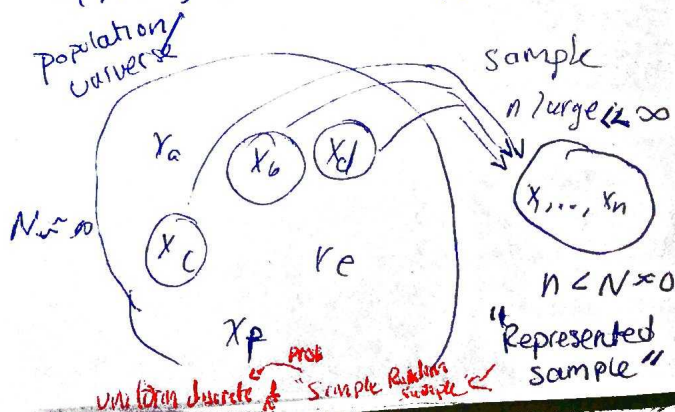 population/
universe
sample
n large << ∞
x_a
x_b
x_d
x_1, ..., x_n
N ≈ ∞
x_c
x_e
n < N ≈ ∞
x_p
"Represented
sample"
prob
uniform discrete
"Simple Random
sample"